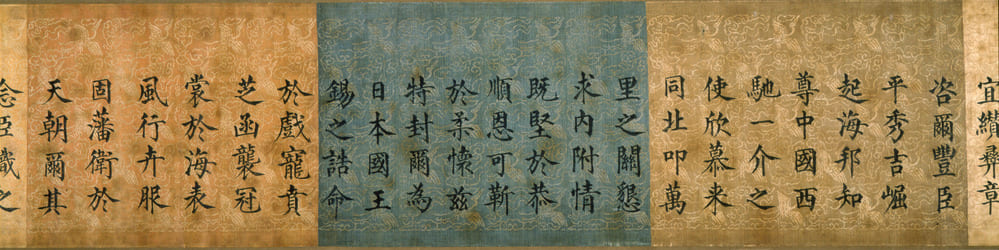 宜纘彞章
咨爾豐臣
平秀吉崛
起海邦知
尊中國西
馳一介之
使欣慕来
同北叩萬
里之關懇
求内附情
既堅於恭
順恩可靳
於柔懷茲
特封爾為
日本國王
錫之誥命
於戲寵賁
芝函襲冠
裳於海表
風行卉服
固藩衛於
天朝爾其
念臣職之